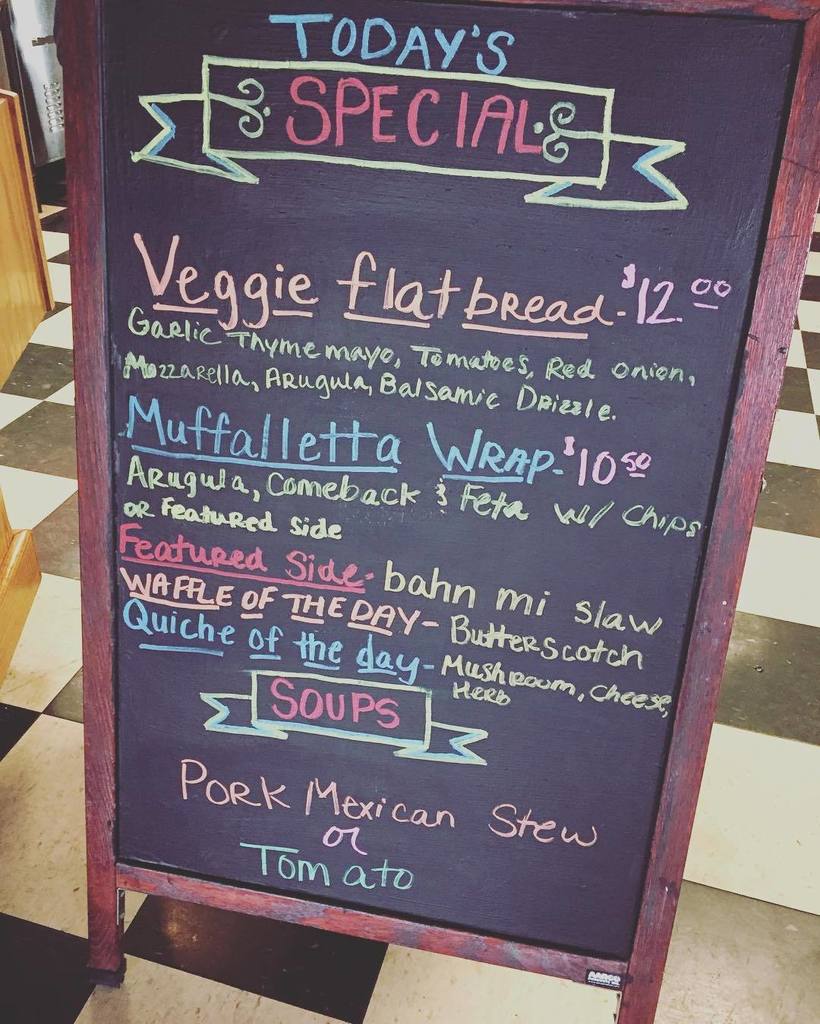 TODAY'S
SPECIAL
Veggie flatbread - $12.00
Garlic Thyme mayo, Tomatoes, Red onion,
Mozzarella, Arugula, Balsamic Drizzle.
Muffalletta WRAP - $10 50
Arugula, Comeback & Feta w/ Chips
or Featured Side
Featured Side - bahn mi slaw
WAFFLE OF THE DAY - Butterscotch
Quiche of the day - Mushroom, Cheese,
Herb
SOUPS
Pork Mexican Stew
or
Tomato
AARCO